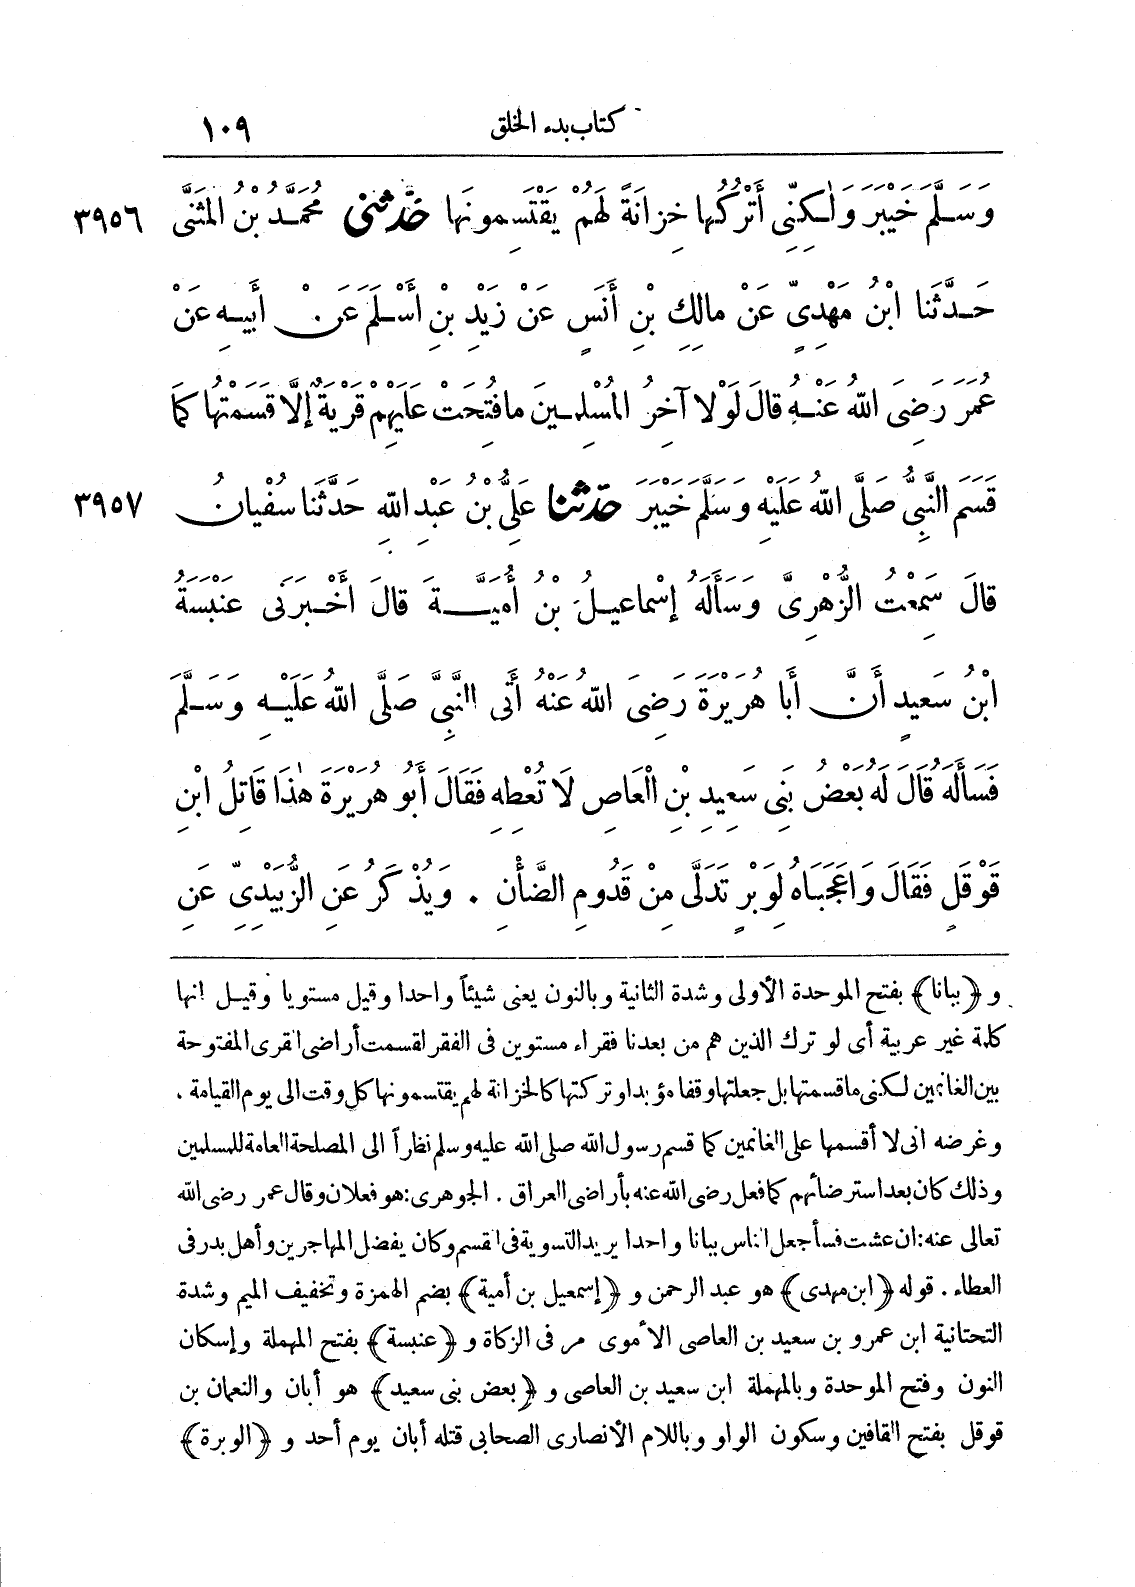 كتاب بدء الخلق ١٠٩
وَسَلَّمَ خَيْبَرَ وَلٰكِنِّى أَتْرُكُهَا خِزَانَةً لَهُمْ يَقْتَسِمُونَهَا حَدَّثَنِى مُحَمَّدُ بْنُ الْمُثَنَّى ٣٩٥٦
حَدَّثَنَا ابْنُ مَهْدِىٍّ عَنْ مَالِكِ بْنِ أَنَسٍ عَنْ زَيْدِ بْنِ أَسْلَمَ عَنْ أَبِيهِ عَنْ
عُمَرَ رَضِىَ اللهُ عَنْهُ قَالَ لَوْلَا آخِرُ الْمُسْلِمِينَ مَا فُتِحَتْ عَلَيْهِمْ قَرْيَةٌ إِلَّا قَسَمْتُهَا كَمَا
قَسَمَ النَّبِىُّ صَلَّى اللهُ عَلَيْهِ وَسَلَّمَ خَيْبَرَ حَدَّثَنَا عَلِىُّ بْنُ عَبْدِ اللهِ حَدَّثَنَا سُفْيَانُ ٣٩٥٧
قَالَ سَمِعْتُ الزُّهْرِىَّ وَسَأَلَهُ إِسْمَاعِيلُ بْنُ أُمَيَّةَ قَالَ أَخْبَرَنِى عَنْبَسَةُ
ابْنُ سَعِيدٍ أَنَّ أَبَا هُرَيْرَةَ رَضِىَ اللهُ عَنْهُ أَتَى النَّبِىَّ صَلَّى اللهُ عَلَيْهِ وَسَلَّمَ
فَسَأَلَهُ قَالَ لَهُ بَعْضُ بَنِى سَعِيدِ بْنِ الْعَاصِ لَا تُعْطِهِ فَقَالَ أَبُو هُرَيْرَةَ هٰذَا قَاتِلُ ابْنِ
قَوْقَلٍ فَقَالَ وَاعَجَبَاهُ لِوَبْرٍ تَدَلَّى مِنْ قَدُومِ الضَّأْنِ . وَيُذْكَرُ عَنِ الزُّبَيْدِىِّ عَنِ
و ﴿ببانا﴾ بفتح الموحدة الأولى وشدة الثانية وبالنون يعنى شيئاً واحدا وقيل مستويا وقيل انها
كلمة غير عربية أى لو ترك الذين هم من بعدنا فقراء مستوين فى الفقر لقسمت أراضى القرى المفتوحة
بين الغانمين لكنى ما قسمتها بل جعلتها وقفا مؤبدا وتركتها كالخزانة لهم يقتسمونها كل وقت الى يوم القيامة .
وغرضه انى لا أقسمها على الغانمين كما قسم رسول الله صلى الله عليه وسلم نظراً الى المصلحة العامة للمسلمين
وذلك كان بعد استرضائهم كما فعل رضى الله عنه بأراضى العراق . الجوهرى: هو فعلان وقال عمر رضى الله
تعالى عنه: ان عشت فسأجعل الناس ببانا واحدا يريد التسوية فى القسم وكان يفضل المهاجرين وأهل بدر فى
العطاء . قوله ﴿ابن مهدى﴾ هو عبد الرحمن و ﴿إسمعيل بن أمية﴾ بضم الهمزة وتخفيف الميم وشدة
التحتانية ابن عمرو بن سعيد بن العاصى الأموى مر فى الزكاة و ﴿عنبسة﴾ بفتح المهملة وإسكان
النون وفتح الموحدة وبالمهملة ابن سعيد بن العاصى و ﴿بعض بنى سعيد﴾ هو أبان والنعمان بن
قوقل بفتح القافين وسكون الواو وباللام الأنصارى الصحابى قتله أبان يوم أحد و ﴿الوبرة﴾